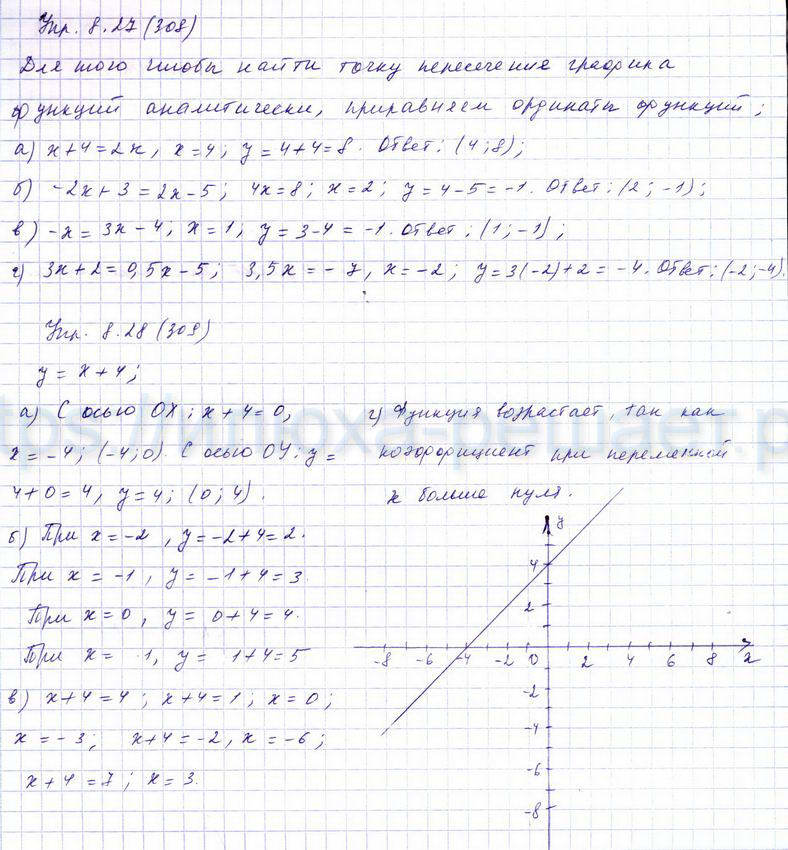 Упр. 8.27 (308)
Для того чтобы найти точку пересечение графика
функций аналитически, приравняем ординаты функций;
а) x+4=2x, x=4; y=4+4=8. Ответ: (4;8);
б) -2x+3=2x-5; 4x=8; x=2; y=4-5=-1. Ответ: (2; -1);
в) -x=3x-4; x=1; y=3-4=-1. Ответ: (1; -1);
г) 3x+2=0,5x-5; 3,5x=-7, x=-2; y=3(-2)+2=-4. Ответ: (-2;-4).
Упр. 8.28 (309)
y=x+4;
а) С осью OX: x+4=0,
x=-4; (-4;0). С осью OY: y=
4+0=4, y=4; (0;4).
б) При x=-2, y=-2+4=2.
При x=-1, y=-1+4=3.
При x=0, y=0+4=4.
При x= 1, y= 1+4=5
в) x+4=4; x+4=1; x=0;
x=-3; x+4=-2, x=-6;
x+4=7; x=3.
г) Функция возрастает, так как
коэффициент при переменной
x больше нуля.
y
4
2
-8 -6 -4 -2 0 2 4 6 8 x
-2
-4
-6
-8